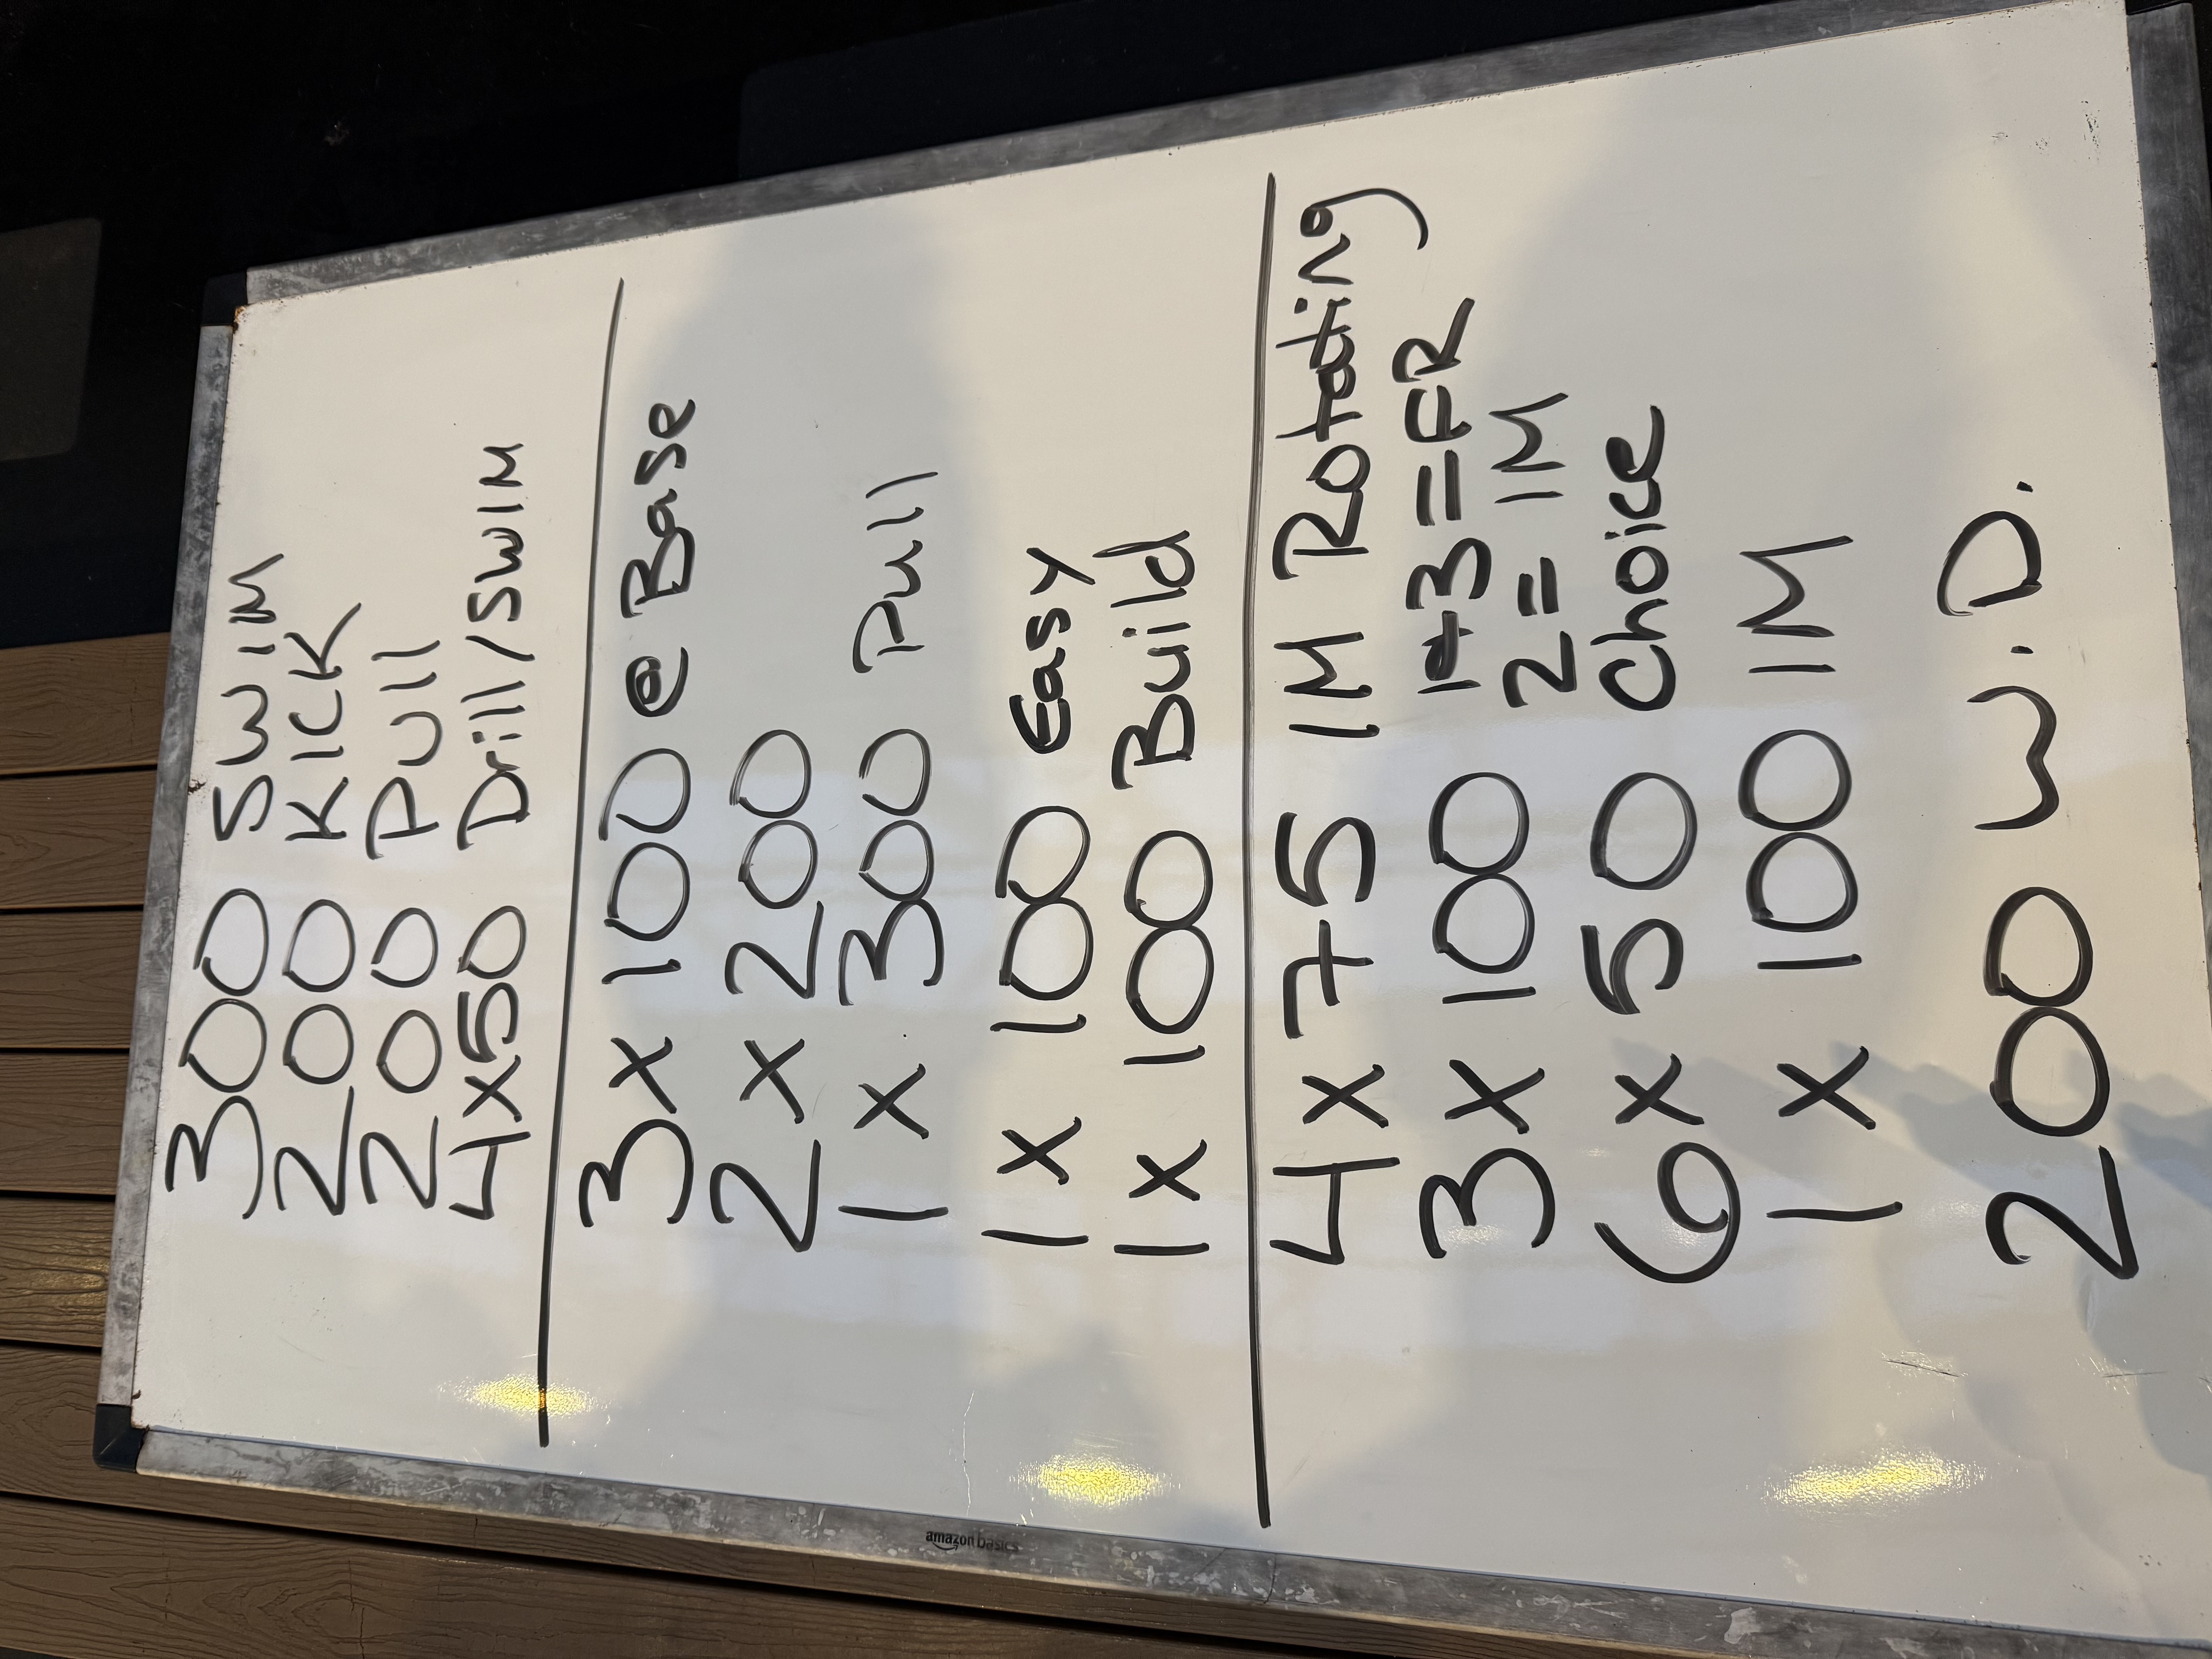 300 SWIM
200 KICK
200 PUll
4x50 Drill/SWIM
3x 100 @ Base
2 x 200
1 x 300 Pull
1x 100 Easy
1x 100 Build
4x 75 IM Rotating
3x 100 1+3=FR
2= IM
6 x 50 Choice
1 x 100 IM
200 W.D.
amazon basics